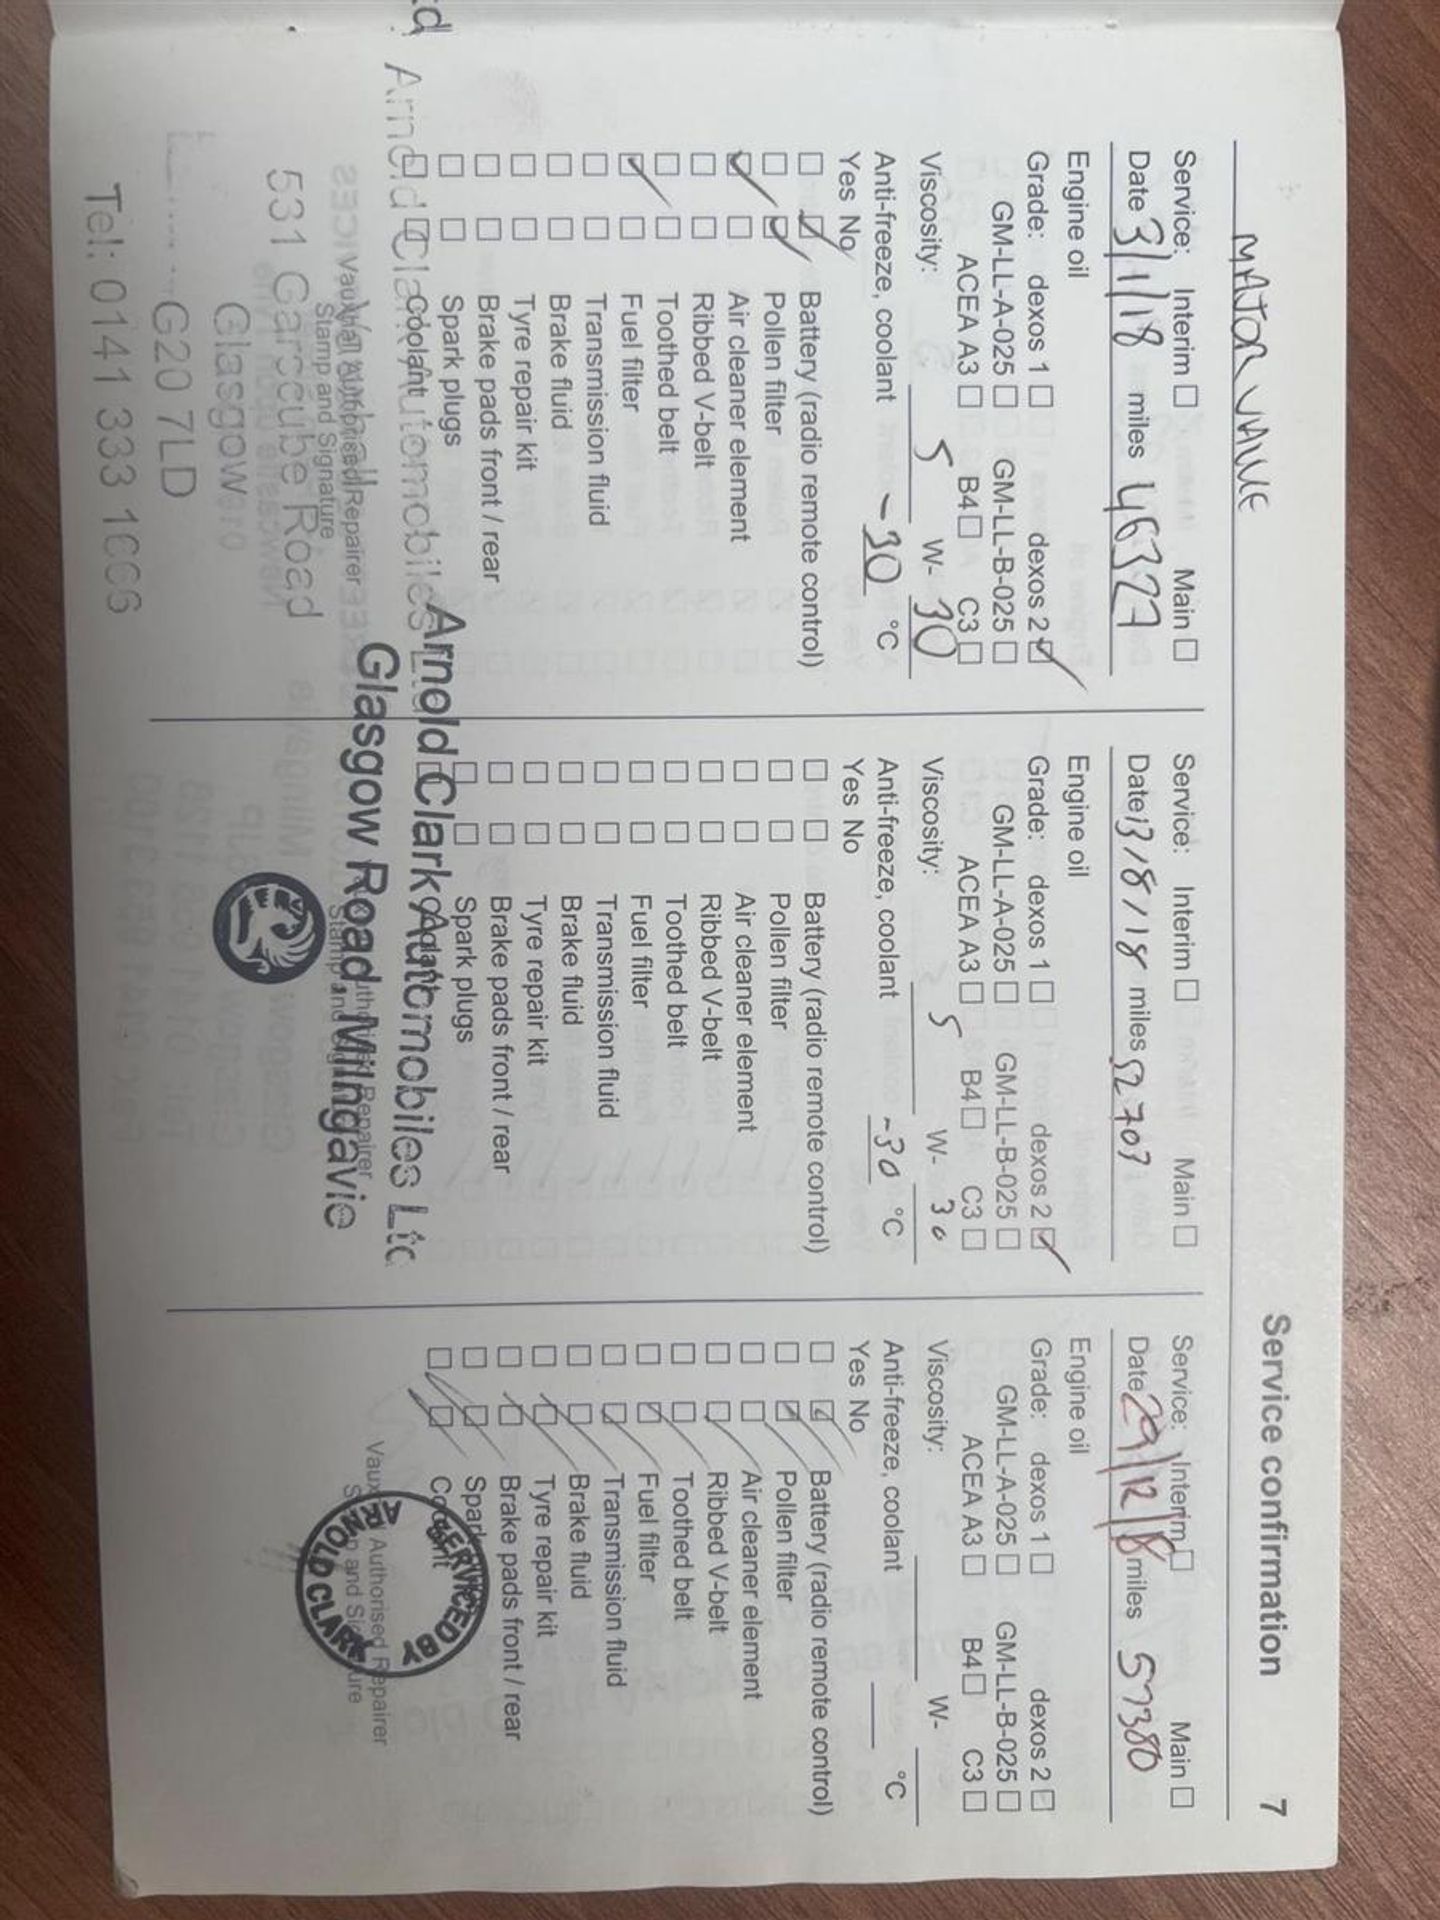 Service confirmation 7
MAJOR VALUE
Service: Interim ☐ Main ☐
Date 3/1/18 miles 46327
Engine oil
Grade: dexos 1 ☐ dexos 2 ☑
GM-LL-A-025 ☐ GM-LL-B-025 ☐
ACEA A3 ☐ B4 ☐ C3 ☐
Viscosity: 5 W- 30
Anti-freeze, coolant -30 °C
Yes No
☐ ☑ Battery (radio remote control)
☐ ☑ Pollen filter
☑ ☐ Air cleaner element
☐ ☐ Ribbed V-belt
☐ ☐ Toothed belt
☑ ☐ Fuel filter
☐ ☐ Transmission fluid
☐ ☐ Brake fluid
☐ ☐ Tyre repair kit
☐ ☐ Brake pads front / rear
☐ ☐ Spark plugs
☐ ☐ Coolant
Vauxhall Authorised Repairer
Stamp and Signature
Arnold Clark Automobiles Ltd
Vauxhall
531 Garscube Road
Glasgow
G20 7LD
Tel: 0141 333 1006
Service: Interim ☐ Main ☐
Date 13/8/18 miles 52703
Engine oil
Grade: dexos 1 ☐ dexos 2 ☑
GM-LL-A-025 ☐ GM-LL-B-025 ☐
ACEA A3 ☐ B4 ☐ C3 ☐
Viscosity: 5 W- 30
Anti-freeze, coolant -30 °C
Yes No
☐ ☐ Battery (radio remote control)
☐ ☐ Pollen filter
☐ ☐ Air cleaner element
☐ ☐ Ribbed V-belt
☐ ☐ Toothed belt
☐ ☐ Fuel filter
☐ ☐ Transmission fluid
☐ ☐ Brake fluid
☐ ☐ Tyre repair kit
☐ ☐ Brake pads front / rear
☐ ☐ Spark plugs
Arnold Clark Automobiles Ltd
Glasgow Road, Milngavie
Service: Interim ☐ Main ☐
Date 29/12/18 miles 57380
Engine oil
Grade: dexos 1 ☐ dexos 2 ☐
GM-LL-A-025 ☐ GM-LL-B-025 ☐
ACEA A3 ☐ B4 ☐ C3 ☐
Viscosity: W-
Anti-freeze, coolant °C
Yes No
☐ ☑ Battery (radio remote control)
☐ ☑ Pollen filter
☐ ☑ Air cleaner element
☐ ☑ Ribbed V-belt
☐ ☑ Toothed belt
☐ ☑ Fuel filter
☐ ☑ Transmission fluid
☐ ☑ Brake fluid
☐ ☑ Tyre repair kit
☐ ☑ Brake pads front / rear
☐ ☑ Spark
☐ ☑ Coolant
Vauxhall Authorised Repairer
Stamp and Signature
SERVICED BY
ARNOLD CLARK